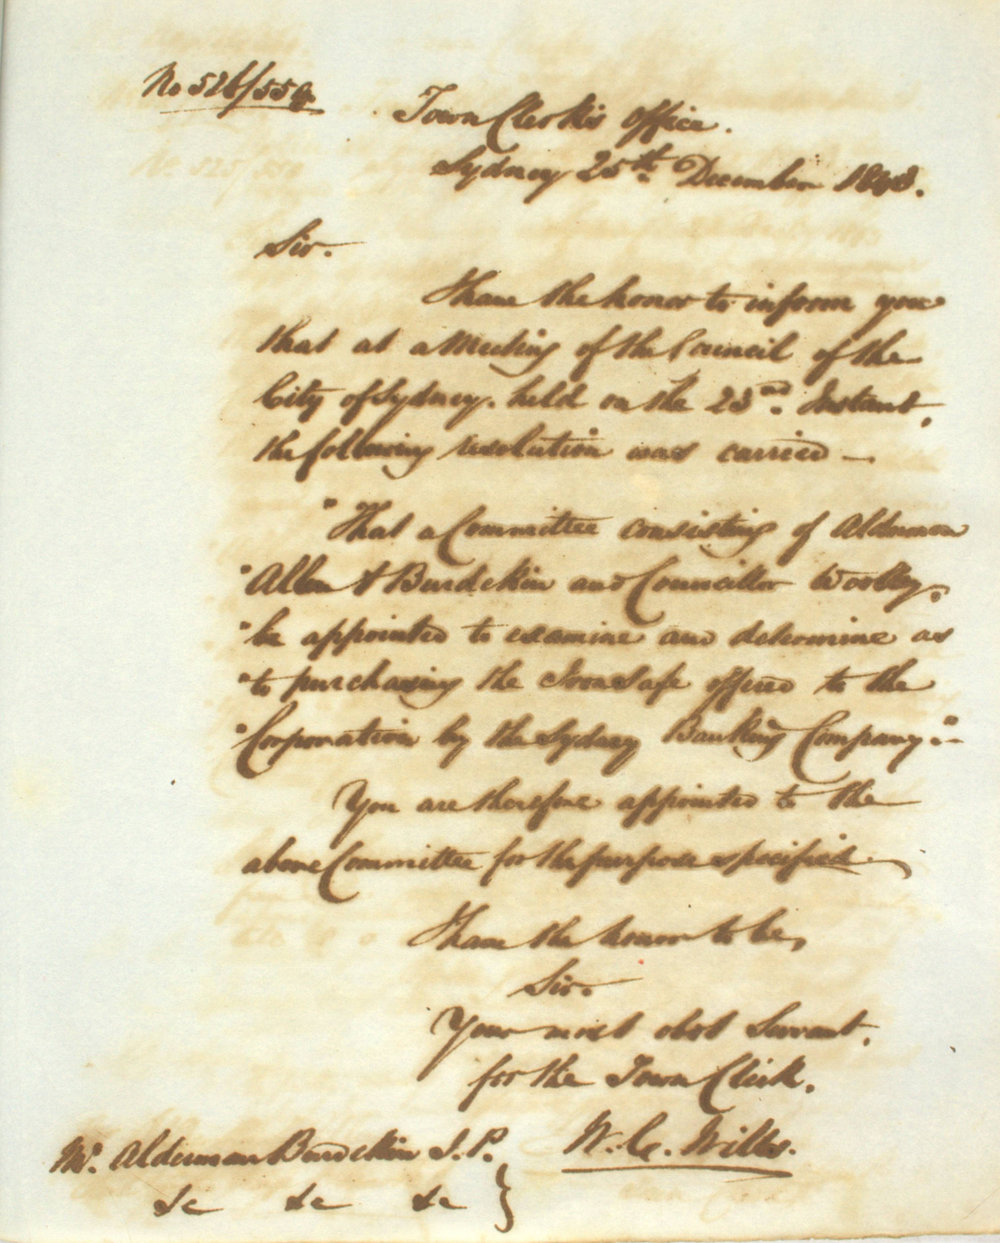 No 526/559.
Town Clerk's Office.
Sydney 25th December 1843.
Sir.
I have the honor to inform you
that at a Meeting of the Council of the
City of Sydney. held on the 23rd. Instant,
the following resolution was carried —
"That a Committee consisting of Aldermen
"Allen & Burdekin and Councillor Wortley.
"be appointed to examine and determine as
"to purchasing the Iron Safe offered to the
"Corporation by the Sydney Banking Company."-
You are therefore appointed to the
above Committee for the purpose specified.
I have the honor to be,
Sir.
Your most obdt Servant,
for the Town Clerk.
Mr. Alderman Burdekin J.P. }
W. C. Wills.
&c &c &c